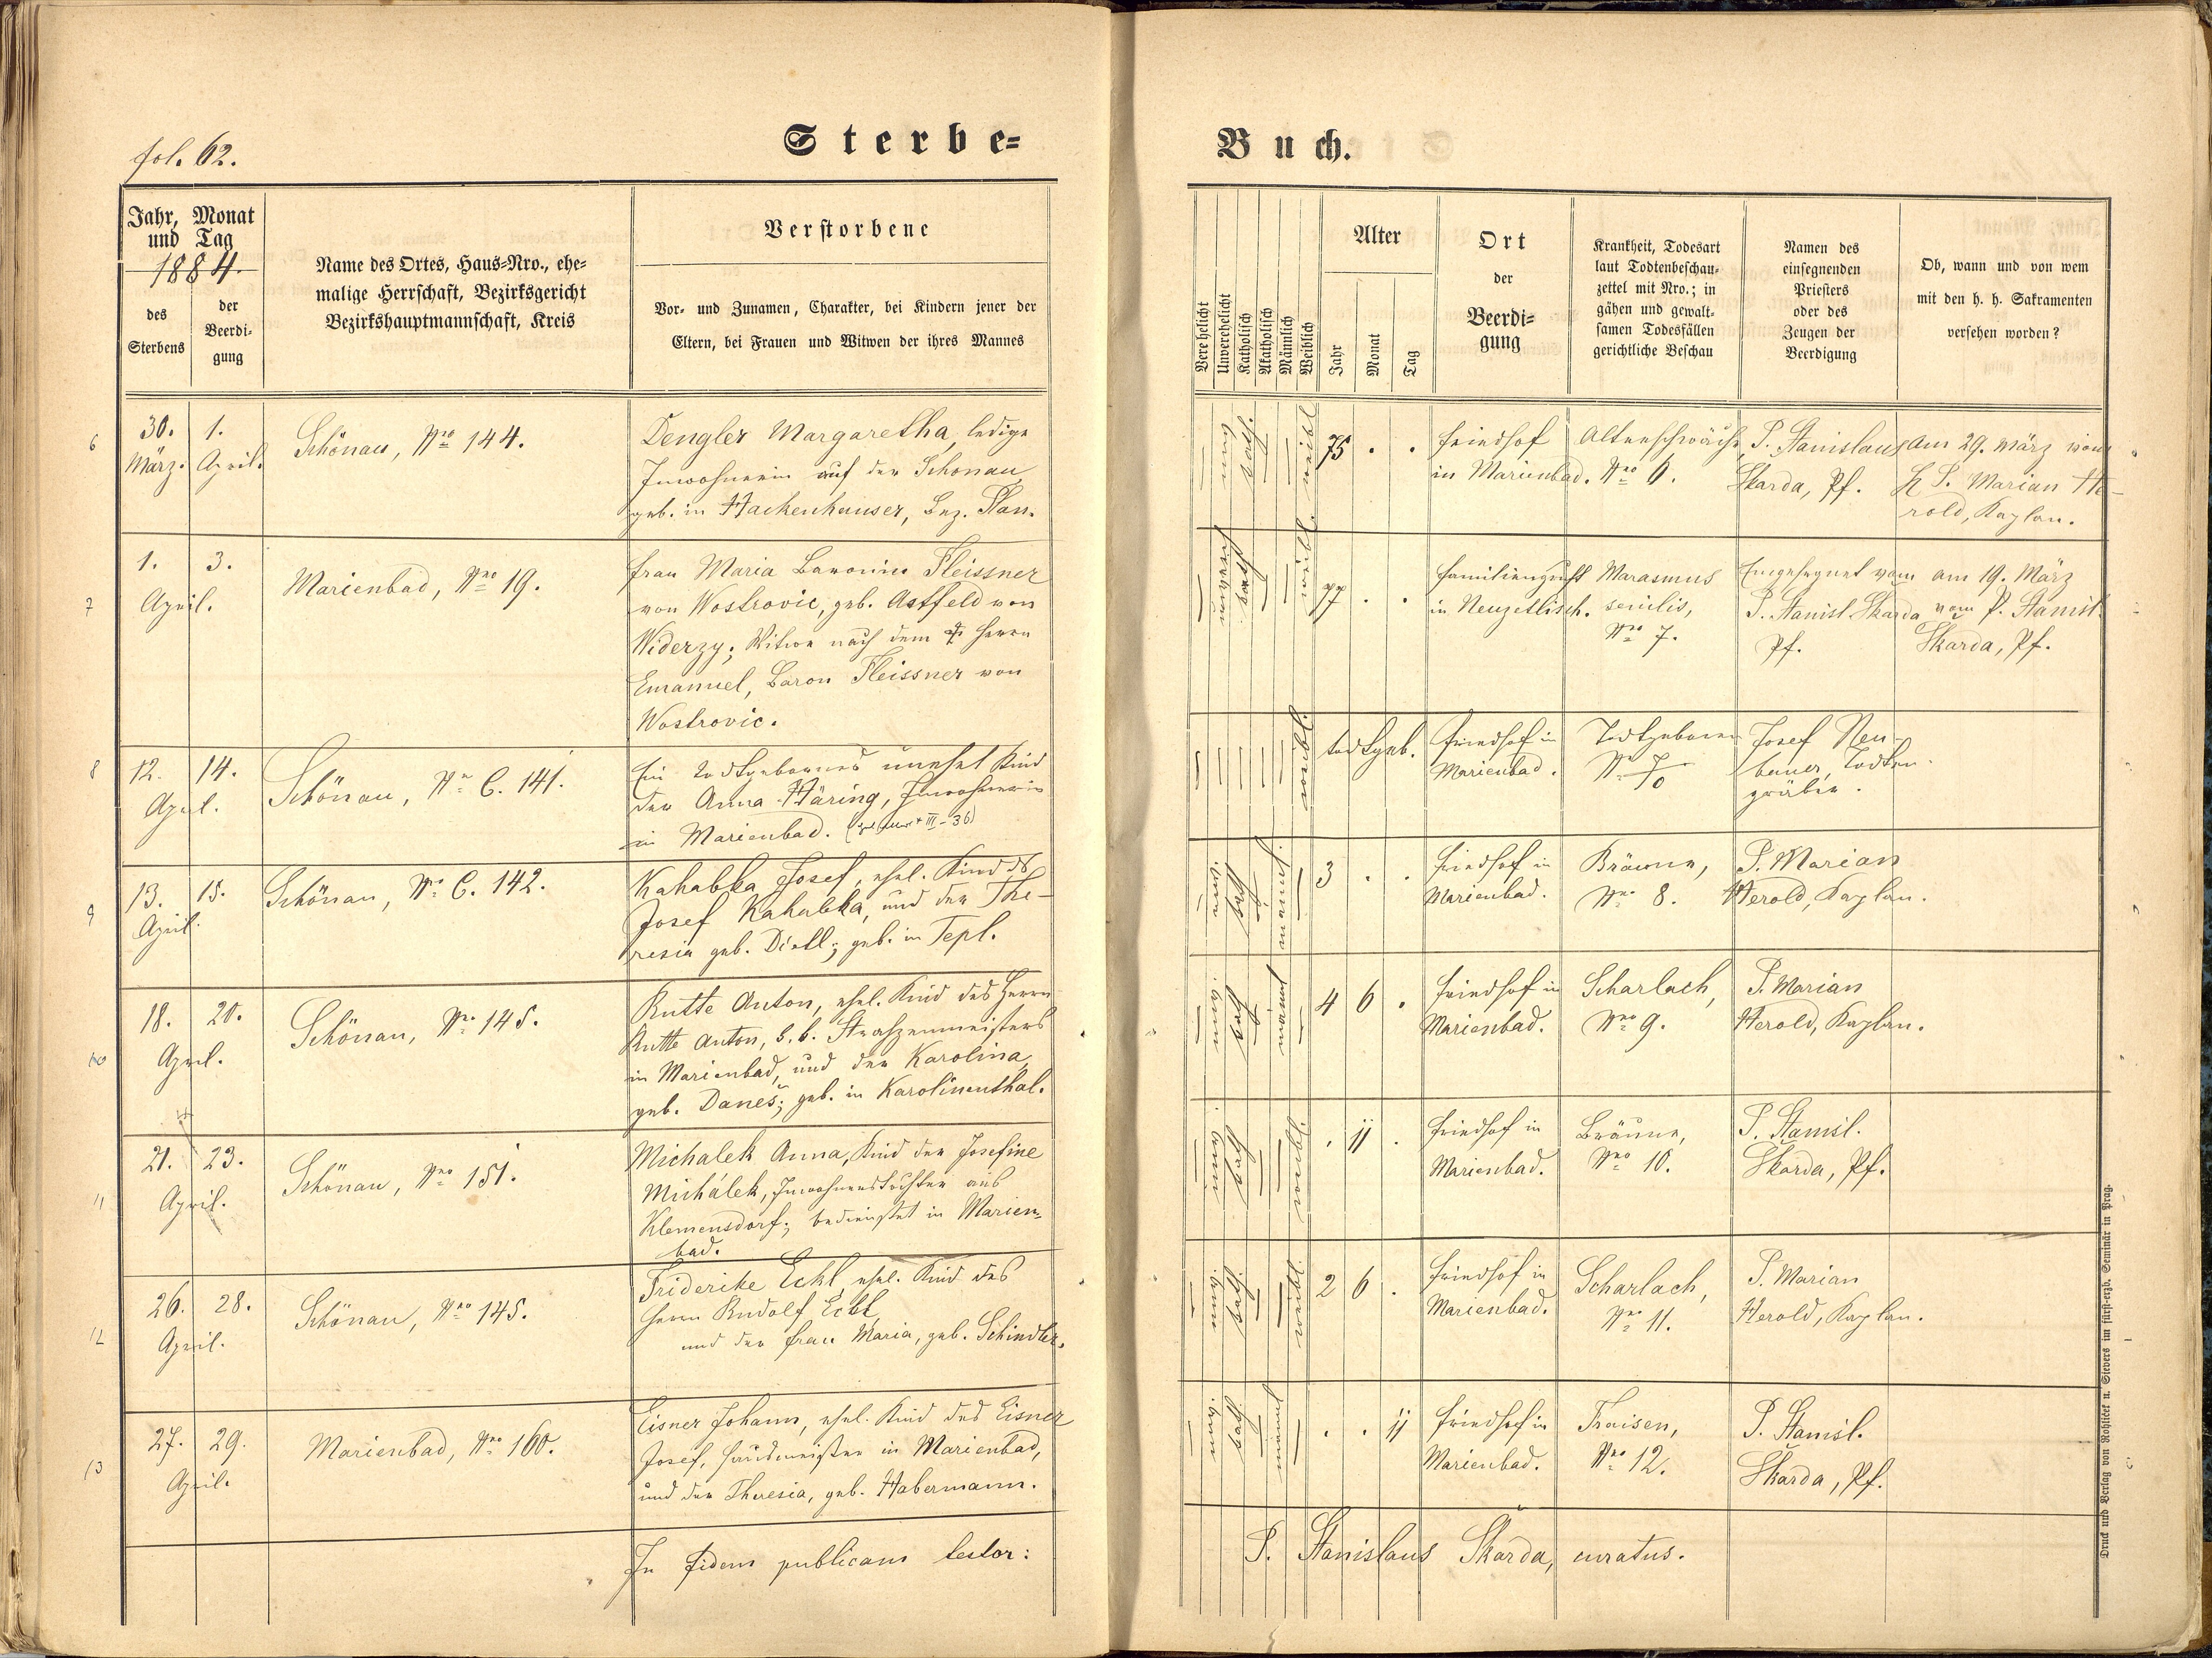 fol. 62.
Sterbe=
Buch.
Jahr, Monat
und Tag
1884.
des
Sterbens
der
Beerdi=
gung
Name des Ortes, Haus=Nro., ehe=
malige Herrschaft, Bezirksgericht
Bezirkshauptmannschaft, Kreis
Verstorbene
Vor= und Zunamen, Charakter, bei Kindern jener der
Eltern, bei Frauen und Witwen der ihres Mannes
Verehelicht
Unverehelicht
Katholisch
Akatholisch
Männlich
Weiblich
Alter
Jahr
Monat
Tag
Ort
der
Beerdi=
gung
Krankheit, Todesart
laut Todtenbeschau=
zettel mit Nro.; in
gähen und gewalt=
samen Todesfällen
gerichtliche Beschau
Namen des
einsegnenden
Priesters
oder des
Zeugen der
Beerdigung
Ob, wann und von wem
mit den h. h. Sakramenten
versehen worden?
6
30. 1.
März. April.
Schönau, Nro 144.
Dengler Margaretha, ledige
Inwohnerin auf der Schönau
geb. in Hackenhäuser, Bez. Plan.
kath.
weibl
75 . .
Friedhof
in Marienbad.
Altersschwäche
Nro 6.
P. Stanislaus
Skarda, Pf.
Am 29. März vom
P. Marian He-
rold, Kaplan.
7
1. 3.
April.
Marienbad, Nro 19.
Frau Maria Baronin Fleissner
von Wostrovic, geb. Astfeld von
Widerzy; Witwe nach dem Herrn
Emanuel, Baron Fleissner von
Wostrovic.
kath
weibl.
77 . .
Familiengruft
in Neuzetlisch.
Marasmus
senilis,
Nro 7.
Eingesegnet vom
P. Stanisl. Skarda
Pf.
am 19. März
vom P. Stanisl.
Skarda, Pf.
8
12. 14.
April.
Schönau, Nro C. 141.
Ein todtgebornes unehel Kind
der Anna Häring, Inwohnerin
in Marienbad.
weibl.
todtgeb.
Friedhof in
Marienbad.
Todtgeboren
Nro 7/0
Josef Neu-
bauer, Todten-
gräber.
9
13. 15.
April.
Schönau, Nro C. 142.
Kahabka Josef, ehel. Kind ds
Josef Kahabka, und der The-
resia geb. Dietl; geb. in Tepl.
kath
männl.
3 . .
Friedhof in
Marienbad.
Bräune,
Nro 8.
P. Marian
Herold, Kaplan.
10
18. 20.
April.
Schönau, Nro 145.
Rutte Anton, ehel. Kind des Herrn
Rutte Anton, k. k. Straßenmeisters
in Marienbad, und der Karolina,
geb. Daneš; geb. in Karolinenthal.
kath
männl
4 6 .
Friedhof in
Marienbad.
Scharlach,
Nro 9.
P. Marian
Herold, Kaplan.
11
21. 23.
April.
Schönau, Nro 151.
Michalek Anna, Kind der Josefine
Michálek, Inwohnerstochter aus
Klemensdorf; bedienstet in Marien-
bad.
kath
weibl.
. 11 .
Friedhof in
Marienbad.
Bräune,
Nro 10.
P. Stanisl.
Škarda, Pf.
12
26. 28.
April.
Schönau, Nro 145.
Friderike Eckl, ehel. Kind des
Herrn Rudolf Eckl,
und der Frau Maria, geb. Schindler.
kath
weibl.
2 6 .
Friedhof in
Marienbad.
Scharlach,
Nro 11.
P. Marian
Herold, Kaplan.
13
27. 29.
April.
Marienbad, Nro 160.
Eisner Johann, ehel. Kind des Eisner
Josef, Hausmeister in Marienbad,
und der Theresia, geb. Habermann.
kath
männl
. . 11
Friedhof in
Marienbad.
Fraisen,
Nro 12.
P. Stanisl.
Škarda, Pf.
In fidem publicam testor:
P. Stanislaus Škarda, curatus.
Druck und Verlag von Rohliček u. Sievers im fürst=erzb. Seminär in Prag.